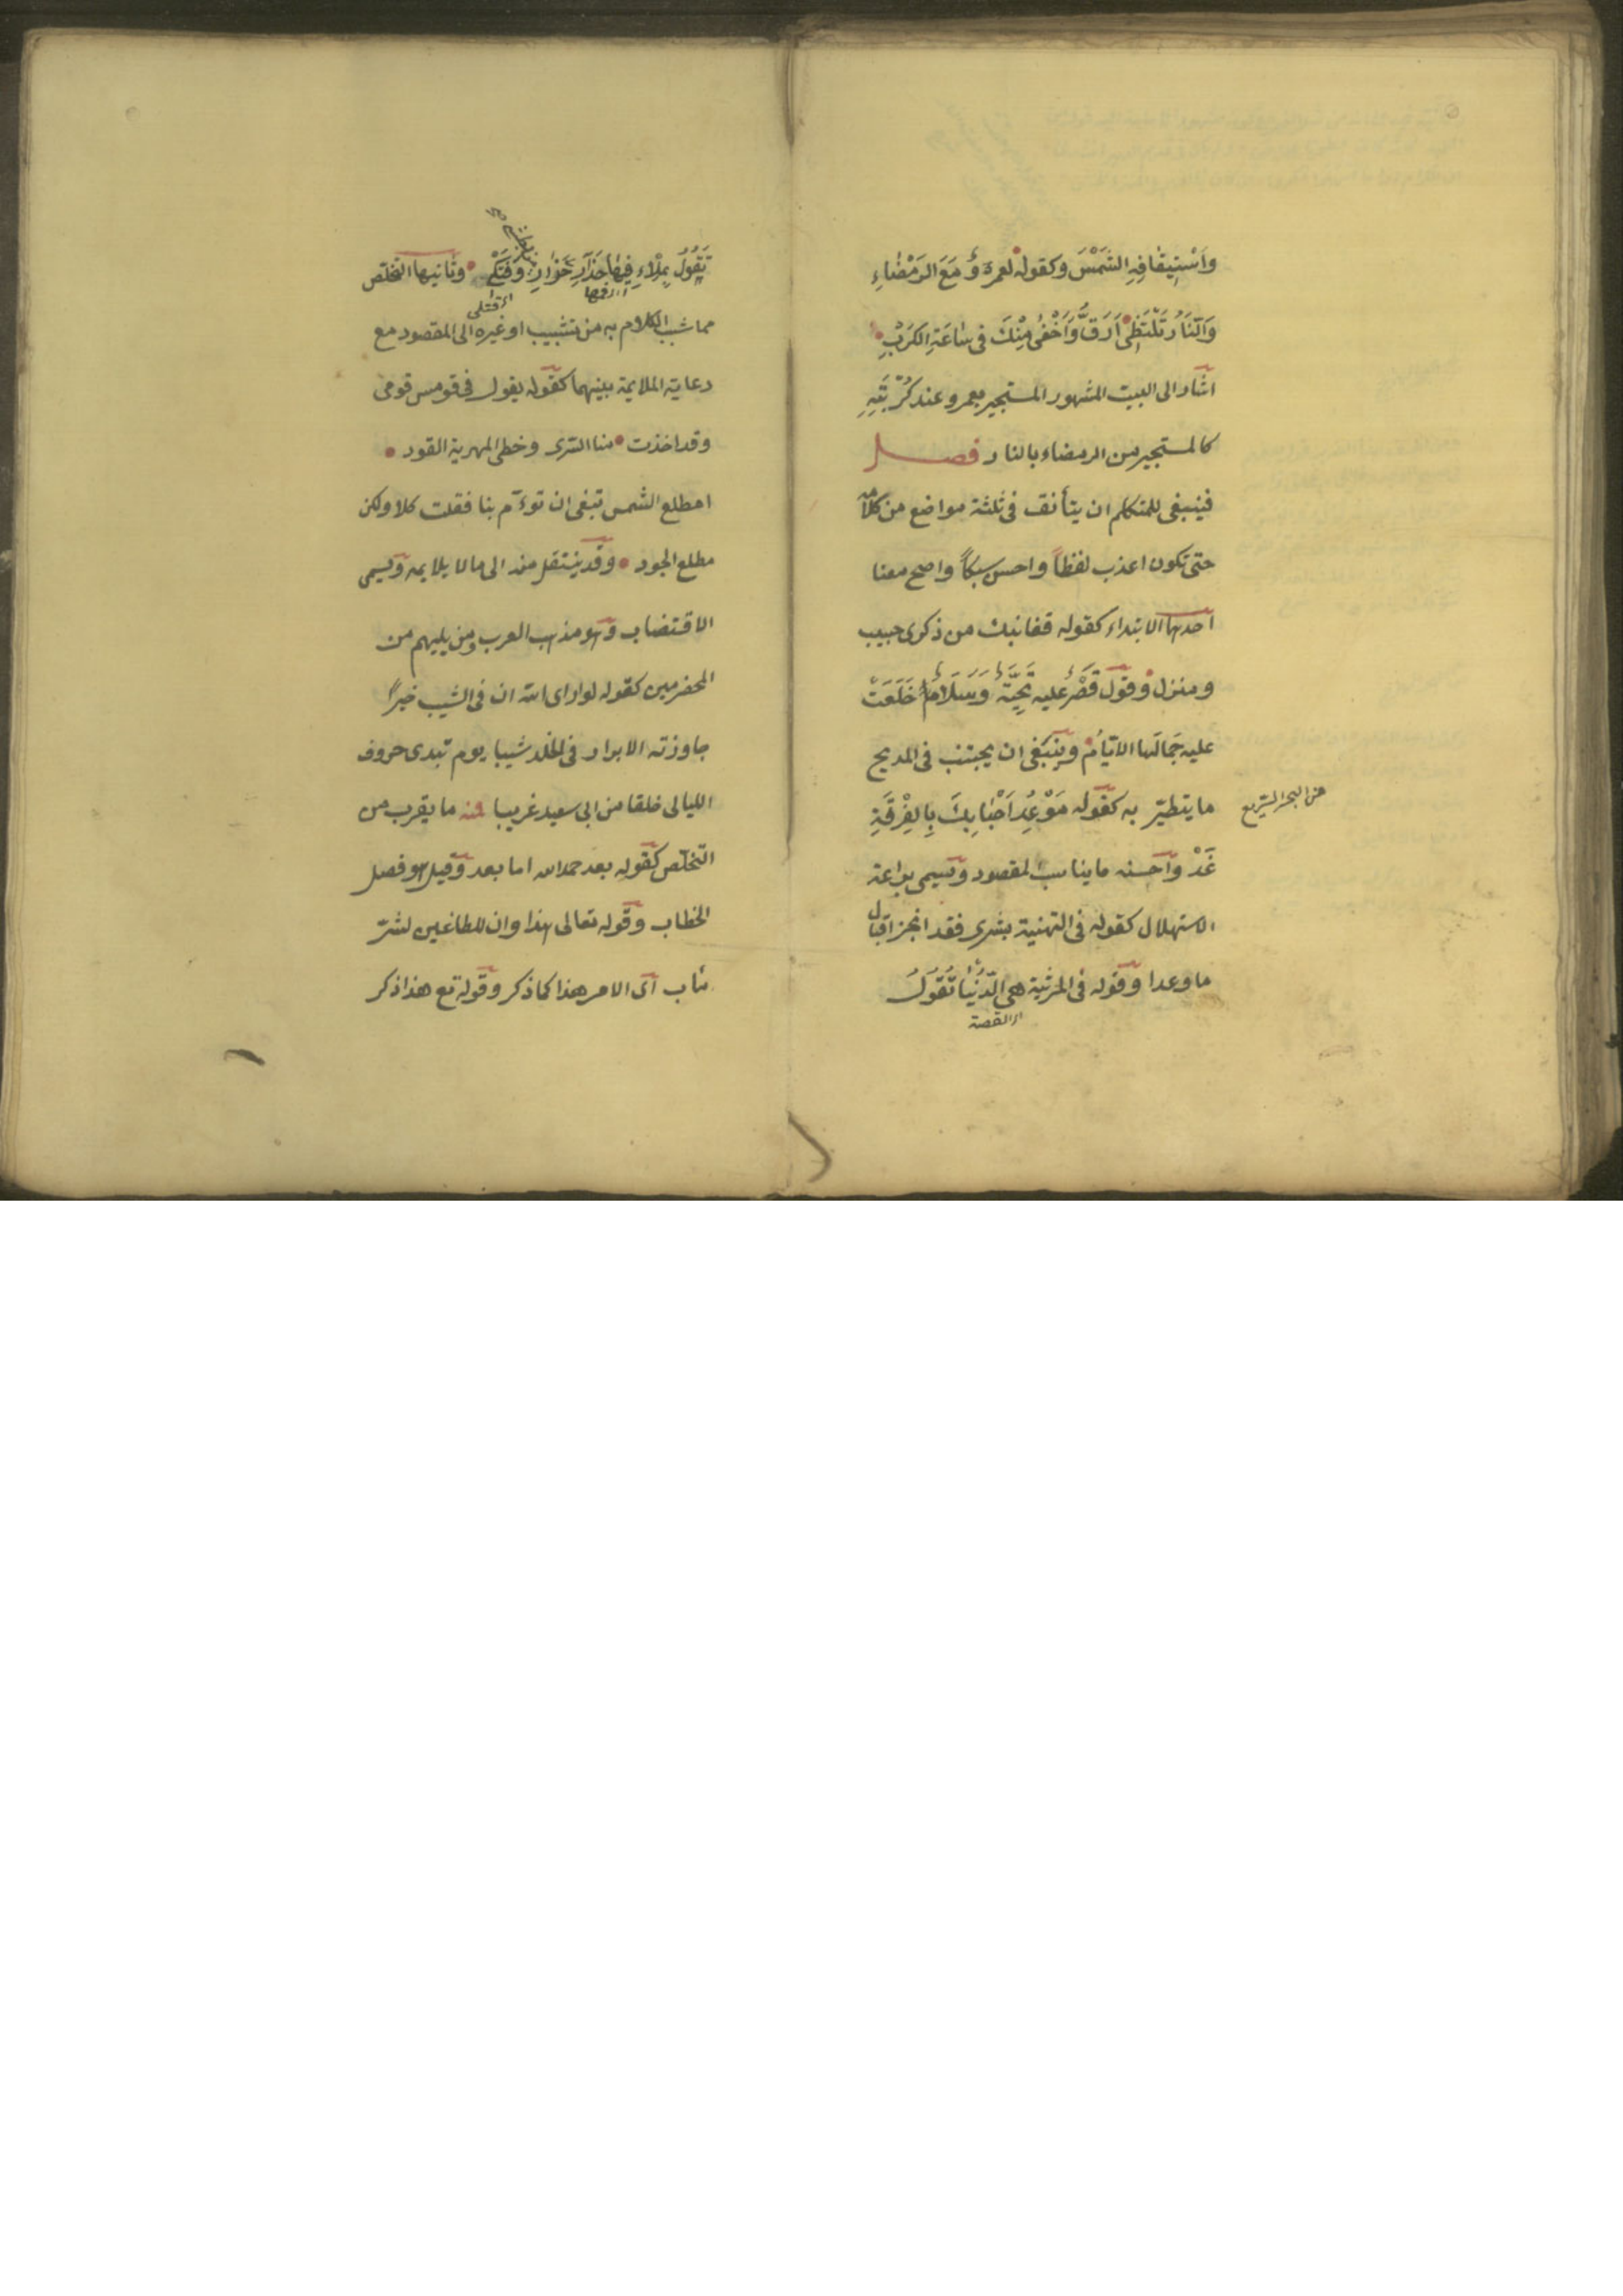 واستيقافه الشمس وكقوله لعمرو مع الرمضاء
والنار تلتظى ارق واخفى منك فى ساعة الكرب
اشار الى البيت المشهور المستجير بعمرو عند كربته
كالمستجير من الرمضاء بالنار فصل
فينبغى للمتكلم ان يتأنق فى ثلثة مواضع من كلامه
حتى تكون اعذب لفظاً واحسن سبكاً واصح معنا
احدها الابتداء كقوله قفا نبك من ذكرى حبيب
ومنزل وقول قَصْرٌ عليه تَحِيَّةٌ وَسَلَامٌ خَلَعَتْ
عليه جَمَالَها الاَيّامُ وينبغى ان يجتنب فى المديح
ما يتطيّر به كقوله مَوْعِدُ اَحْبَابِكَ بِالفِرْقَةِ
غَدْ واحسنه ما يناسب المقصود ويسمى براعة
الاستهلال كقوله فى التهنية بشرى فقد انجز اقبال
ما وعدا وقوله فى المرثية هى الدُّنْيَا تَقُولُ
اى القصة
من البحر السريع
تَقُولُ بِمِلْاءِ فِيهَا حَذَارِ حَذَارِ وَفَتْكِى وثانيها التخلص
اى فمها
اى قتلى
مما شبب الكلام به من تشبيب او غيره الى المقصود مع
رعاية الملايمة بينهما كقوله يقول فى قومس قومى
وقد اخذت منا السرى وخطى المهرية القود
امطلع الشمس تبغى ان تؤم بنا فقلت كلا ولكن
مطلع الجود وقد ينتقل منه الى ما لا يلايمه ويسمى
الاقتضاب وهو مذهب العرب ومن يليهم من
المخضرمين كقوله لو اراى الله ان فى الشيب خيراً
جاوزته الابرار فى الخلد شيبا يوم تبدى حروف
الليالى خلقا من ابى سعيد غريبا منه ما يقرب من
التخلّص كقوله بعد حمد الله اما بعد وقيل هو فصل
الخطاب وقوله تعالى هذا وان للطاغين لشرّ
مأب اى الامر هذا كما ذكر وقوله تع هذا ذكر